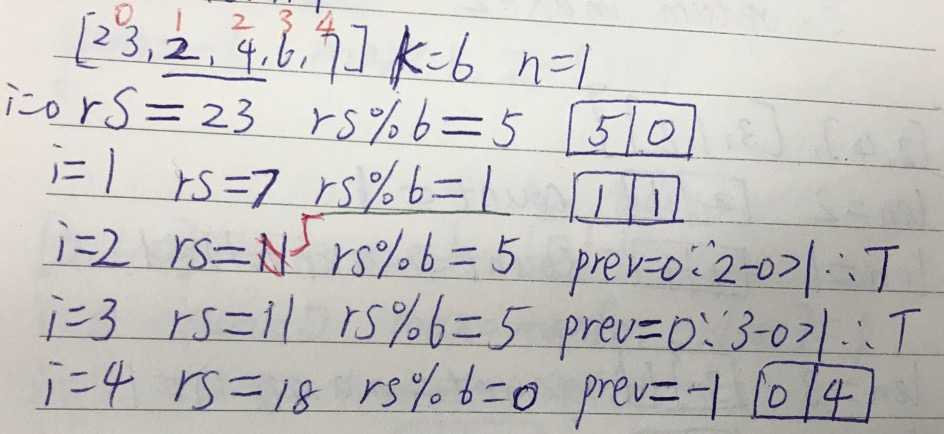 0 1 2 3 4
[23, 2, 4, 6, 7] k=6 n=1
i=0 rs=23 rs%6=5 5 0
i=1 rs=7 rs%6=1 1 1
i=2 rs=11 5 rs%6=5 prev=0 ∵2-0>1 ∴T
i=3 rs=11 rs%6=5 prev=0 ∵3-0>1 ∴T
i=4 rs=18 rs%6=0 prev=-1 0 4